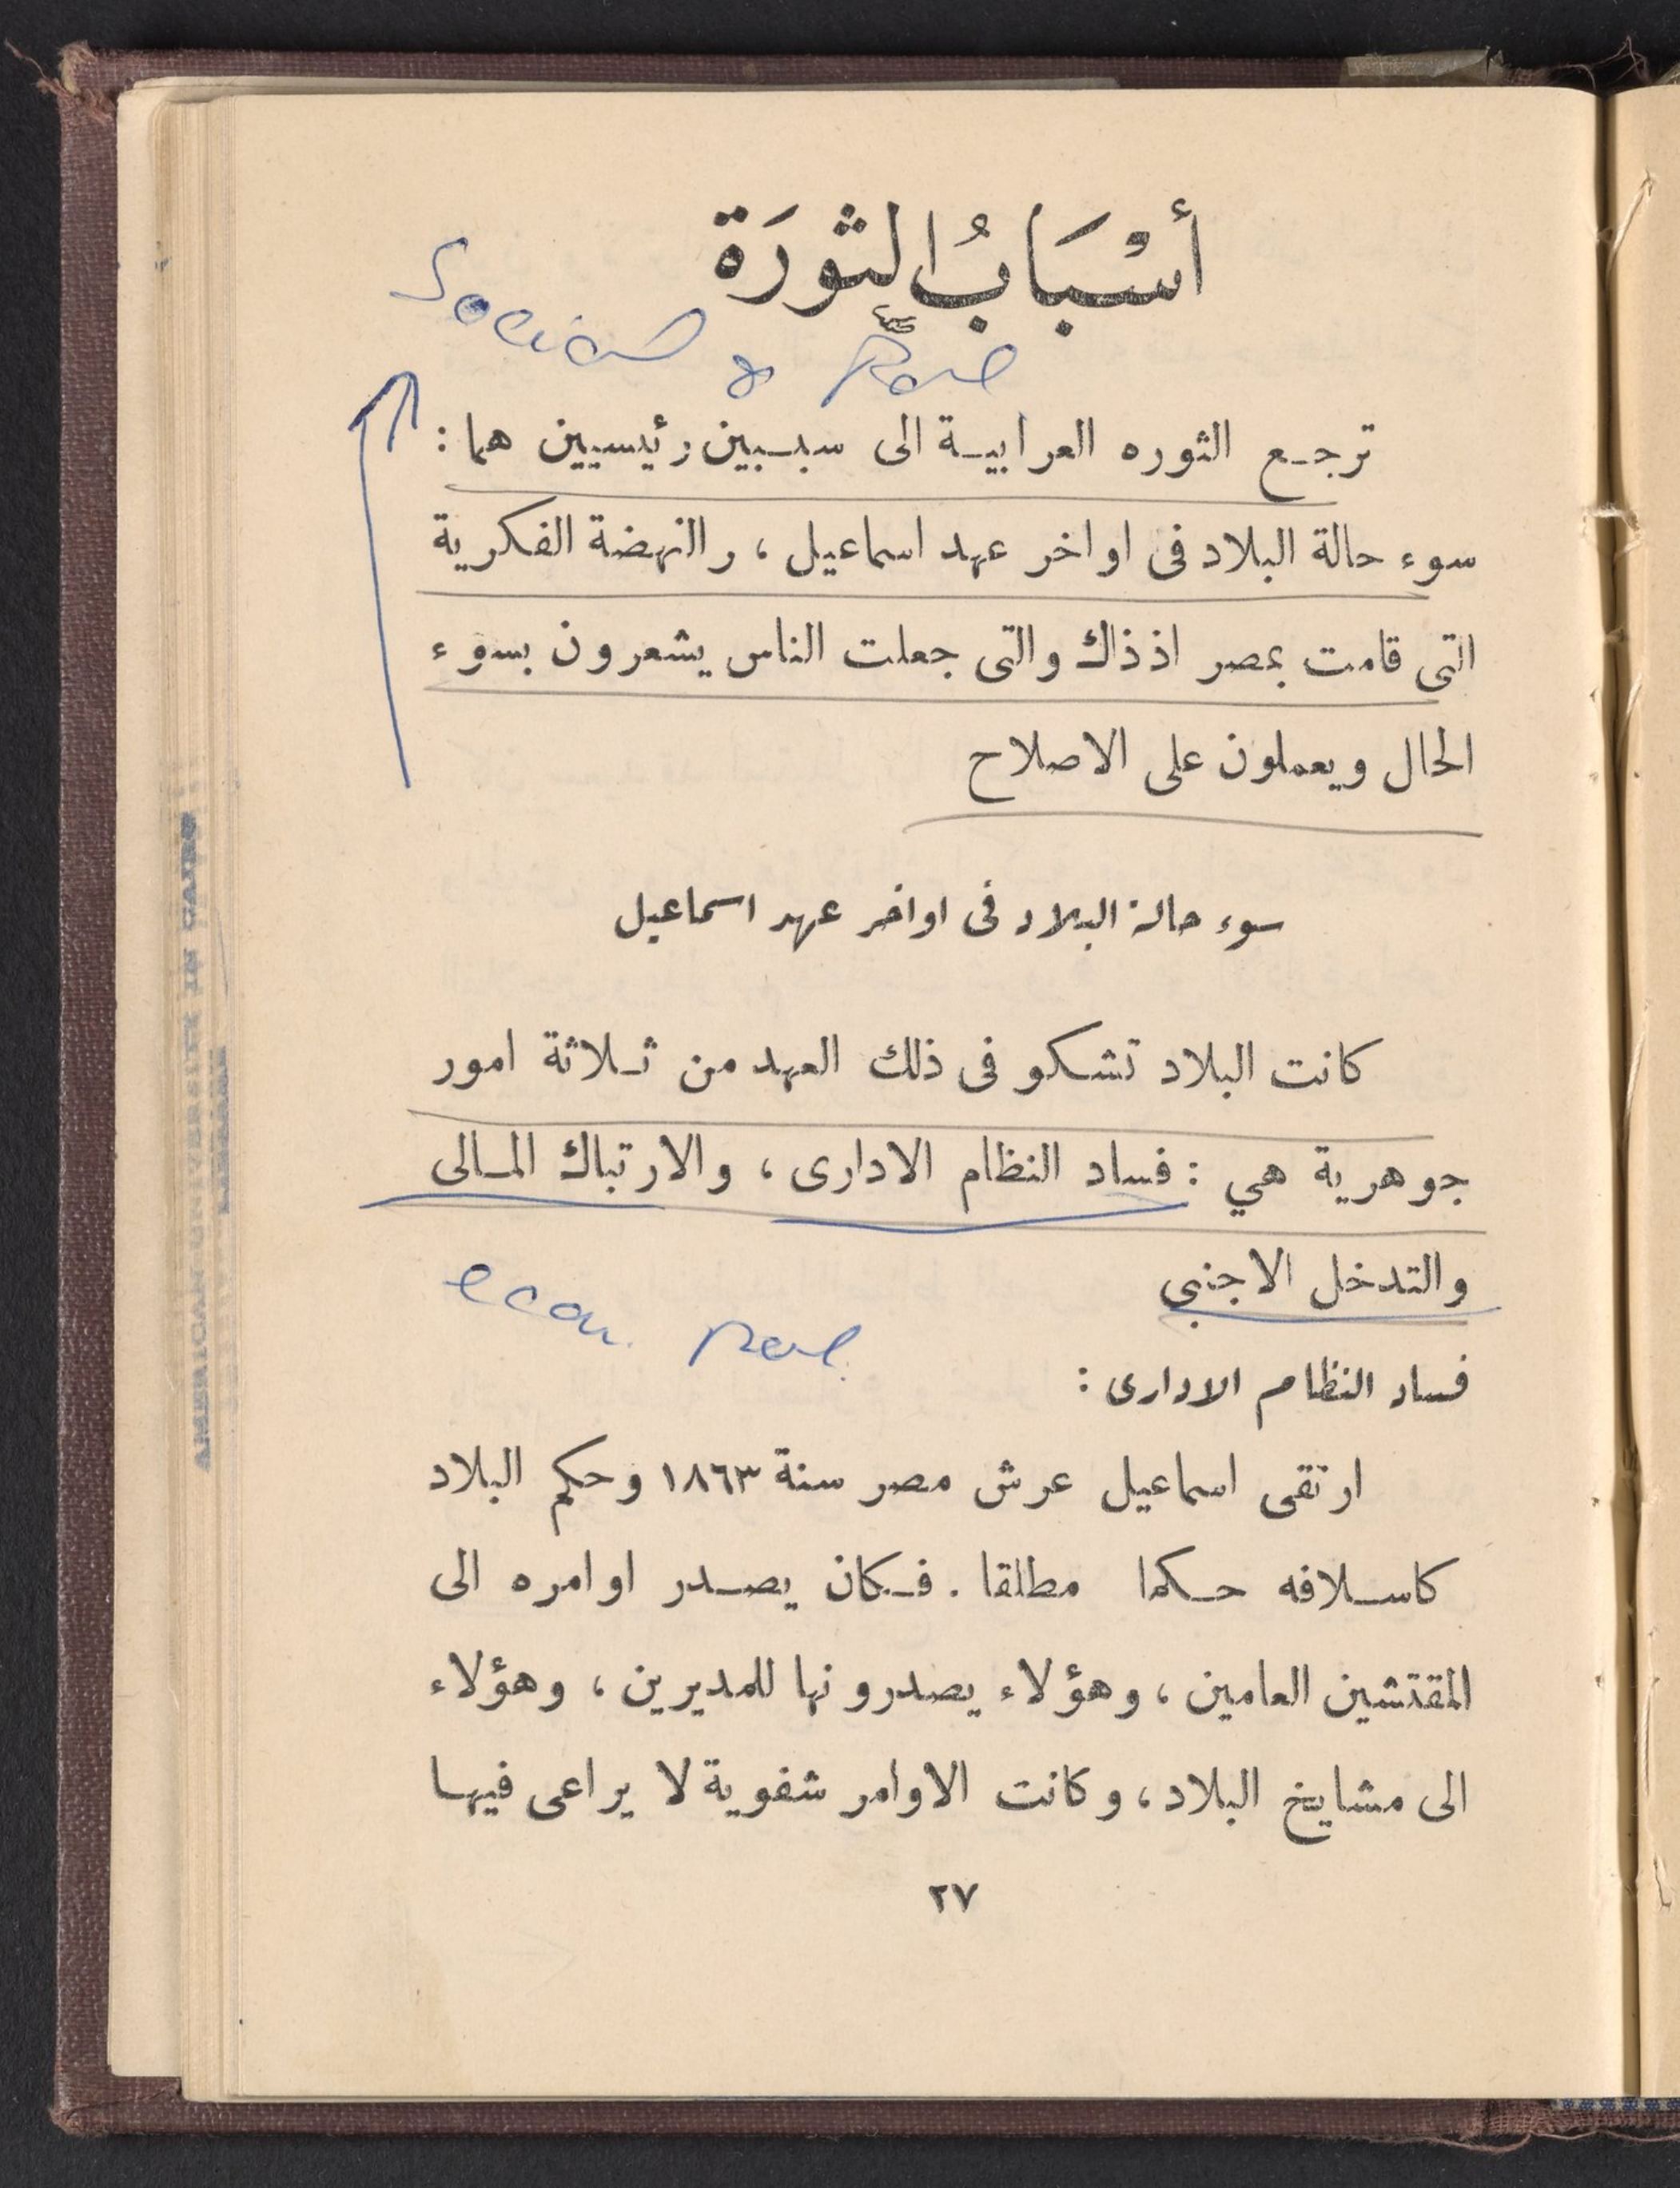 أسْبَابُ الثورَة
Social & Pol
ترجع الثوره العرابية الى سببين رئيسيين هما :
سوء حالة البلاد فى اواخر عهد اسماعيل ، ر النهضة الفكرية
التى قامت بمصر اذ ذاك والتى جعلت الناس يشعرون بسوء
الحال ويعملون على الاصلاح
سوء حالة البلاد فى اواخر عهد اسماعيل
كانت البلاد تشكو فى ذلك العهد من ثلاثة امور
جوهرية هي : فساد النظام الادارى ، والارتباك المالى
والتدخل الاجنبى
econ. Pol.
فساد النظام الادارى :
ارتقى اسماعيل عرش مصر سنة ١٨٦٣ وحكم البلاد
كاسلافه حكما مطلقا . فكان يصدر اوامره الى
المقتشين العامين ، وهؤلاء يصدرونها للمديرين ، وهؤلاء
الى مشايخ البلاد ، وكانت الاوامر شفوية لا يراعى فيها
٢٧
AMERICAN UNIVERSITY IN CAIRO
LIBRARY